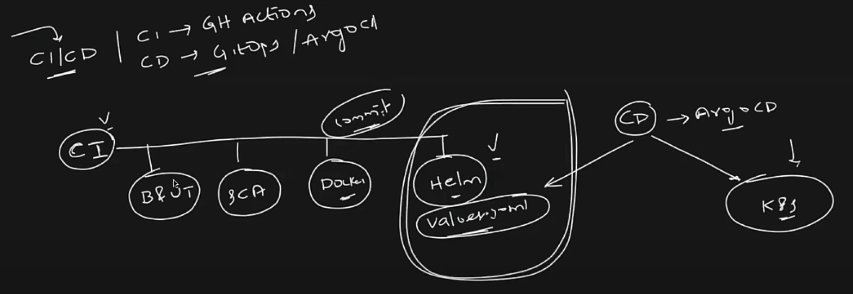 CI/CD | CI → GH Actions
CD → GitOps / ArgoCD
commit
CI
B & UT
SCA
Docker
Helm
values.yaml
CD → ArgoCD
K8s